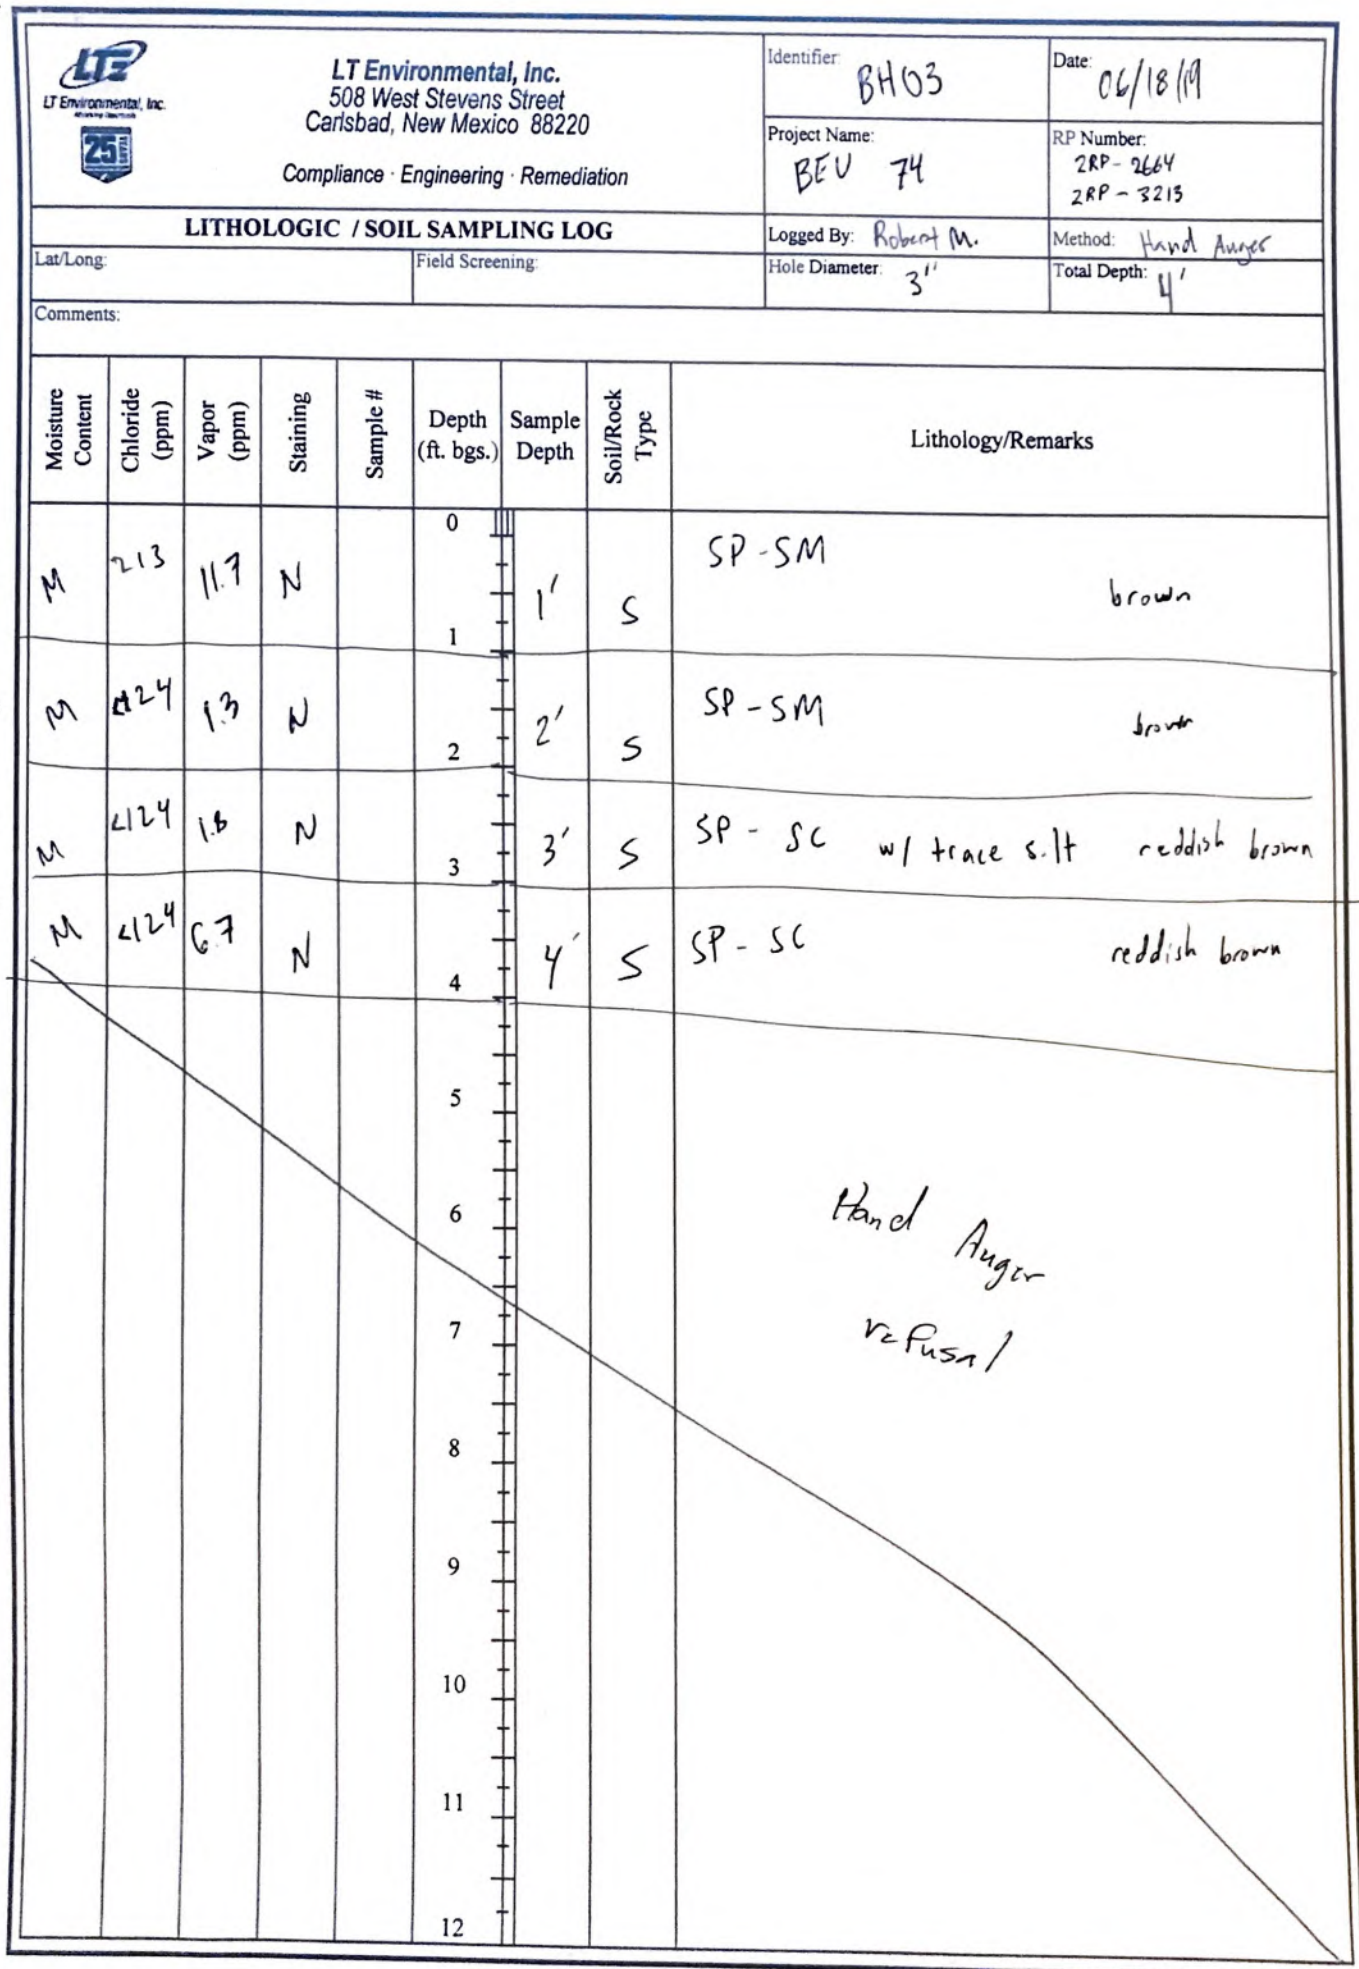 LTE
LT Environmental, Inc.
25 YEARS
LT Environmental, Inc.
508 West Stevens Street
Carlsbad, New Mexico 88220
Compliance · Engineering · Remediation
Identifier: BH03
Date: 06/18/19
Project Name: BEU 74
RP Number:
2RP-2664
2RP-3213
LITHOLOGIC / SOIL SAMPLING LOG
Logged By: Robert M.
Method: Hand Auger
Lat/Long:
Field Screening:
Hole Diameter: 3"
Total Depth: 4'
Comments:
Moisture Content
Chloride (ppm)
Vapor (ppm)
Staining
Sample #
Depth (ft. bgs.)
Sample Depth
Soil/Rock Type
Lithology/Remarks
0
M 213 11.7 N 1' S SP-SM brown
1
M <124 1.3 N 2' S SP-SM brown
2
M <124 1.8 N 3' S SP-SC w/ trace silt reddish brown
3
M <124 6.7 N 4' S SP-SC reddish brown
4
5
6
Hand Auger
refusal
7
8
9
10
11
12